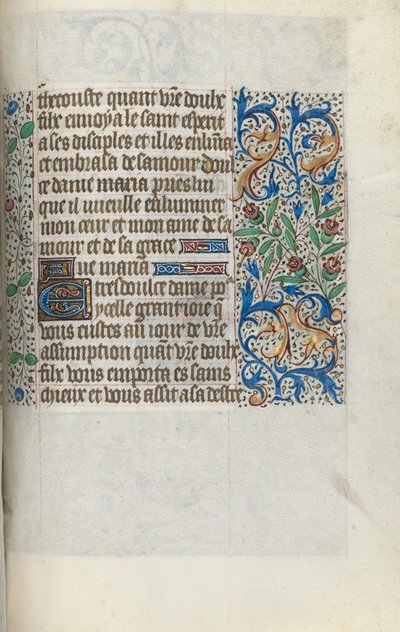 thecouste quant v̄re doulx
filz enuoya le saint esperit
a ses disciples et illes enlum̄a
et embrasa de samour doul
ce dame maria pries lui
que il vueille enluminer
mon cuer et mon ame de sa
mour et de sa grace
Aue maria
E tresdoulce dame po᷑
ycelle grant ioie q̄
vous eustes au iour de v̄re
assumption quāt v̄re doulx
filz vous emporta es sains
chieux et vous assit a sa destre